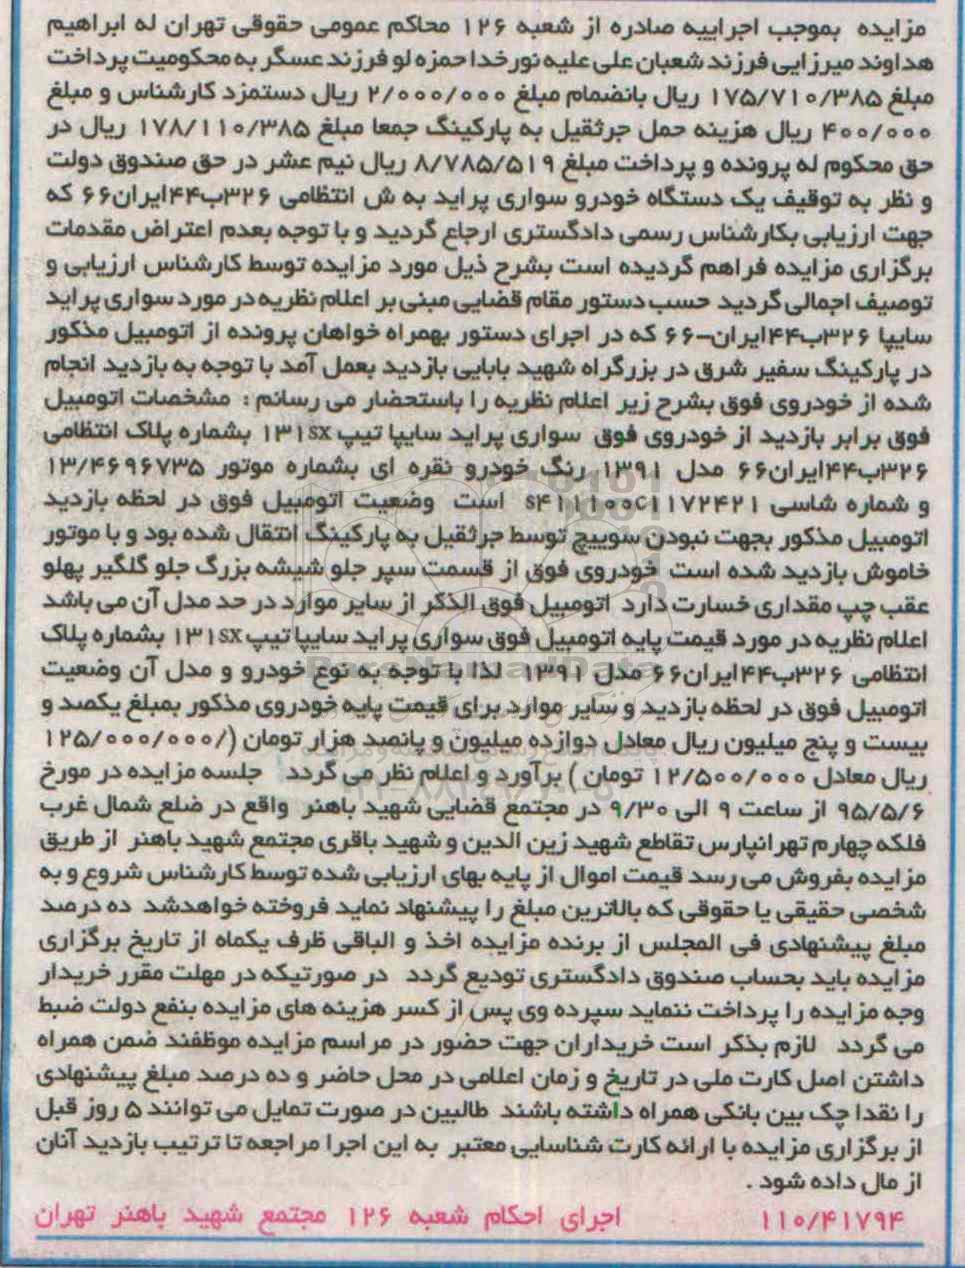 مزایده بموجب اجراییه صادره از شعبه ۱۲۶ محاکم عمومی حقوقی تهران له ابراهیم
هداوند میرزایی فرزند شعبان علی علیه نورخدا حمزه لو فرزند عسگر به محکومیت پرداخت
مبلغ ۱۷۵/۷۱۰/۳۸۵ ریال بانضمام مبلغ ۲/۰۰۰/۰۰۰ ریال دستمزد کارشناس و مبلغ
۴۰۰/۰۰۰ ریال هزینه حمل جرثقیل به پارکینگ جمعا مبلغ ۱۷۸/۱۱۰/۳۸۵ ریال در
حق محکوم له پرونده و پرداخت مبلغ ۸/۷۸۵/۵۱۹ ریال نیم عشر در حق صندوق دولت
و نظر به توقیف یک دستگاه خودرو سواری پراید به ش انتظامی ۳۲۶ب۴۴ایران۶۶ که
جهت ارزیابی بکارشناس رسمی دادگستری ارجاع گردید و با توجه بعدم اعتراض مقدمات
برگزاری مزایده فراهم گردیده است بشرح ذیل مورد مزایده توسط کارشناس ارزیابی و
توصیف اجمالی گردید حسب دستور مقام قضایی مبنی بر اعلام نظریه در مورد سواری پراید
سایپا ۳۲۶ب۴۴ایران-۶۶ که در اجرای دستور بهمراه خواهان پرونده از اتومبیل مذکور
در پارکینگ سفیر شرق در بزرگراه شهید بابایی بازدید بعمل آمد با توجه به بازدید انجام
شده از خودروی فوق بشرح زیر اعلام نظریه را باستحضار می رسانم : مشخصات اتومبیل
فوق برابر بازدید از خودروی فوق سواری پراید سایپا تیپ ۱۳۱SX بشماره پلاک انتظامی
۳۲۶ب۴۴ایران۶۶ مدل ۱۳۹۱ رنگ خودرو نقره ای بشماره موتور ۱۳/۴۶۹۶۷۳۵
و شماره شاسی S۴۱۱۱۰۰C۱۱۷۲۴۲۱ است وضعیت اتومبیل فوق در لحظه بازدید
اتومبیل مذکور بجهت نبودن سوییچ توسط جرثقیل به پارکینگ انتقال شده بود و با موتور
خاموش بازدید شده است خودروی فوق از قسمت سپر جلو شیشه بزرگ جلو گلگیر پهلو
عقب چپ مقداری خسارت دارد اتومبیل فوق الذکر از سایر موارد در حد مدل آن می باشد
اعلام نظریه در مورد قیمت پایه اتومبیل فوق سواری پراید سایپا تیپ ۱۳۱SX بشماره پلاک
انتظامی ۳۲۶ب۴۴ایران۶۶ مدل ۱۳۹۱ لذا با توجه به نوع خودرو و مدل آن وضعیت
اتومبیل فوق در لحظه بازدید و سایر موارد برای قیمت پایه خودروی مذکور بمبلغ یکصد و
بیست و پنج میلیون ریال معادل دوازده میلیون و پانصد هزار تومان (/۱۲۵/۰۰۰/۰۰۰
ریال معادل ۱۲/۵۰۰/۰۰۰ تومان ) برآورد و اعلام نظر می گردد جلسه مزایده در مورخ
۹۵/۵/۶ از ساعت ۹ الی ۹/۳۰ در مجتمع قضایی شهید باهنر واقع در ضلع شمال غرب
فلکه چهارم تهرانپارس تقاطع شهید زین الدین و شهید باقری مجتمع شهید باهنر از طریق
مزایده بفروش می رسد قیمت اموال از پایه بهای ارزیابی شده توسط کارشناس شروع و به
شخصی حقیقی یا حقوقی که بالاترین مبلغ را پیشنهاد نماید فروخته خواهدشد ده درصد
مبلغ پیشنهادی فی المجلس از برنده مزایده اخذ و الباقی ظرف یکماه از تاریخ برگزاری
مزایده باید بحساب صندوق دادگستری تودیع گردد در صورتیکه در مهلت مقرر خریدار
وجه مزایده را پرداخت ننماید سپرده وی پس از کسر هزینه های مزایده بنفع دولت ضبط
می گردد لازم بذکر است خریداران جهت حضور در مراسم مزایده موظفند ضمن همراه
داشتن اصل کارت ملی در تاریخ و زمان اعلامی در محل حاضر و ده درصد مبلغ پیشنهادی
را نقدا چک بین بانکی همراه داشته باشند طالبین در صورت تمایل می توانند ۵ روز قبل
از برگزاری مزایده با ارائه کارت شناسایی معتبر به این اجرا مراجعه تا ترتیب بازدید آنان
از مال داده شود .
۱۱۰/۴۱۷۹۴ اجرای احکام شعبه ۱۲۶ مجتمع شهید باهنر تهران